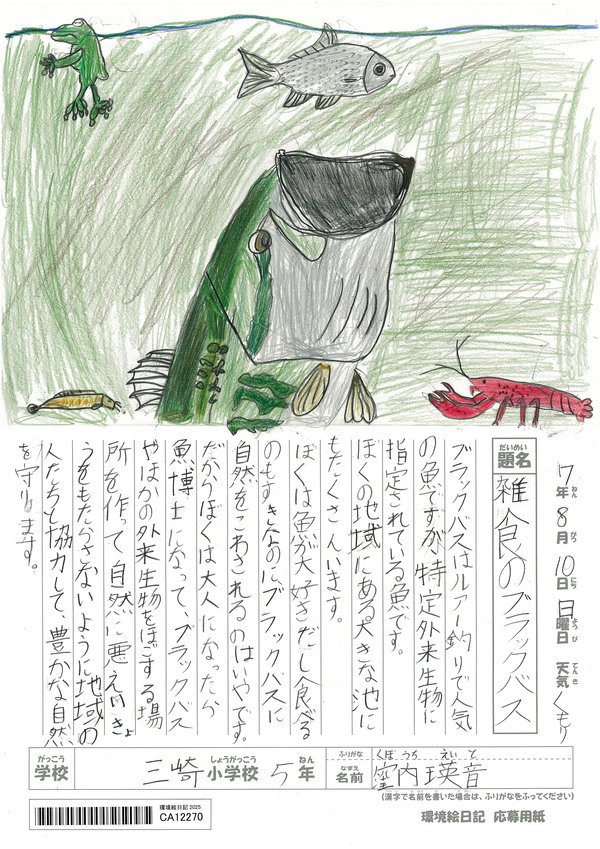 7年8月10日日曜日 天気くもり
ねん がつ にち ようび てんき
だいめい
題名
雑食のブラックバス
ブラックバスはルアー釣りで人気
の魚ですが、特定外来生物に
指定されている魚です。
ぼくの地域にある大きな池に
もたくさんいます。
ぼくは魚が大好きだし食べる
のもすきなのにブラックバスに
自然をこわされるのはいやです。
だからぼくは大人になったら
魚博士になって、ブラックバス
やほかの外来生物をほごする場
所を作って自然に悪えいきょ
うをもたらさないように地域の
人たちと協力して、豊かな自然
を守ります。
がっこう
学校
三崎小学校 5年
しょうがっこう ねん
ふりがな
くぼうち えいと
なまえ
名前
窪内瑛音
(漢字で名前を書いた場合は、ふりがなをふってください)
環境絵日記 2025
CA12270
環境絵日記 応募用紙